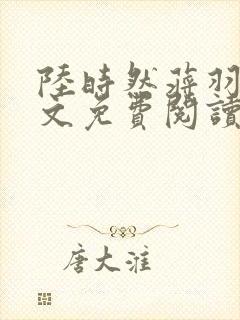 陸時然蔣羽
文免費閱讀
唐大淮